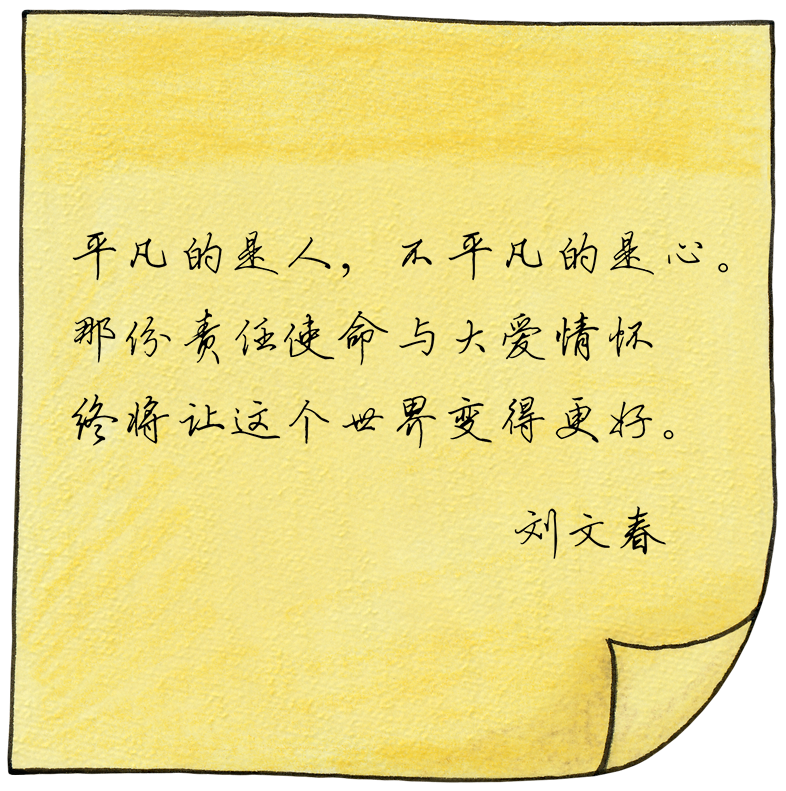 平凡的是人，不平凡的是心。
那份责任使命与大爱情怀
终将让这个世界变得更好。
刘文春